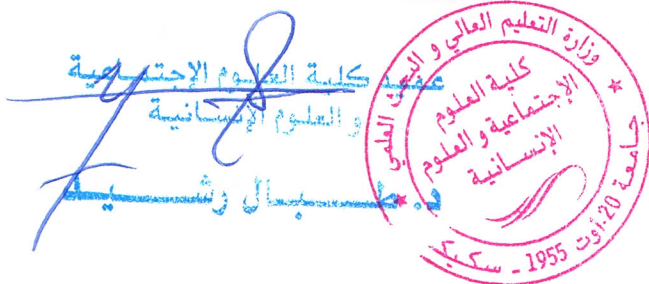 عميد كلية العلوم الإجتماعية
و العلوم الإنسانية
د. طبال رشيد
وزارة التعليم العالي و البحث العلمي
جامعة 20 أوت 1955 - سكيكدة
كلية العلوم
الإجتماعية و العلوم
الإنسانية